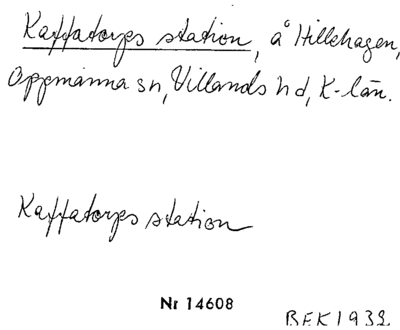 Kaffatorps station, å Hillehagen,
Oppmanna sn, Villands hd, K-län.
Kaffatorps station
Nr 14608
BEK 1932